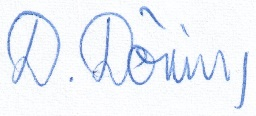 D. Döring